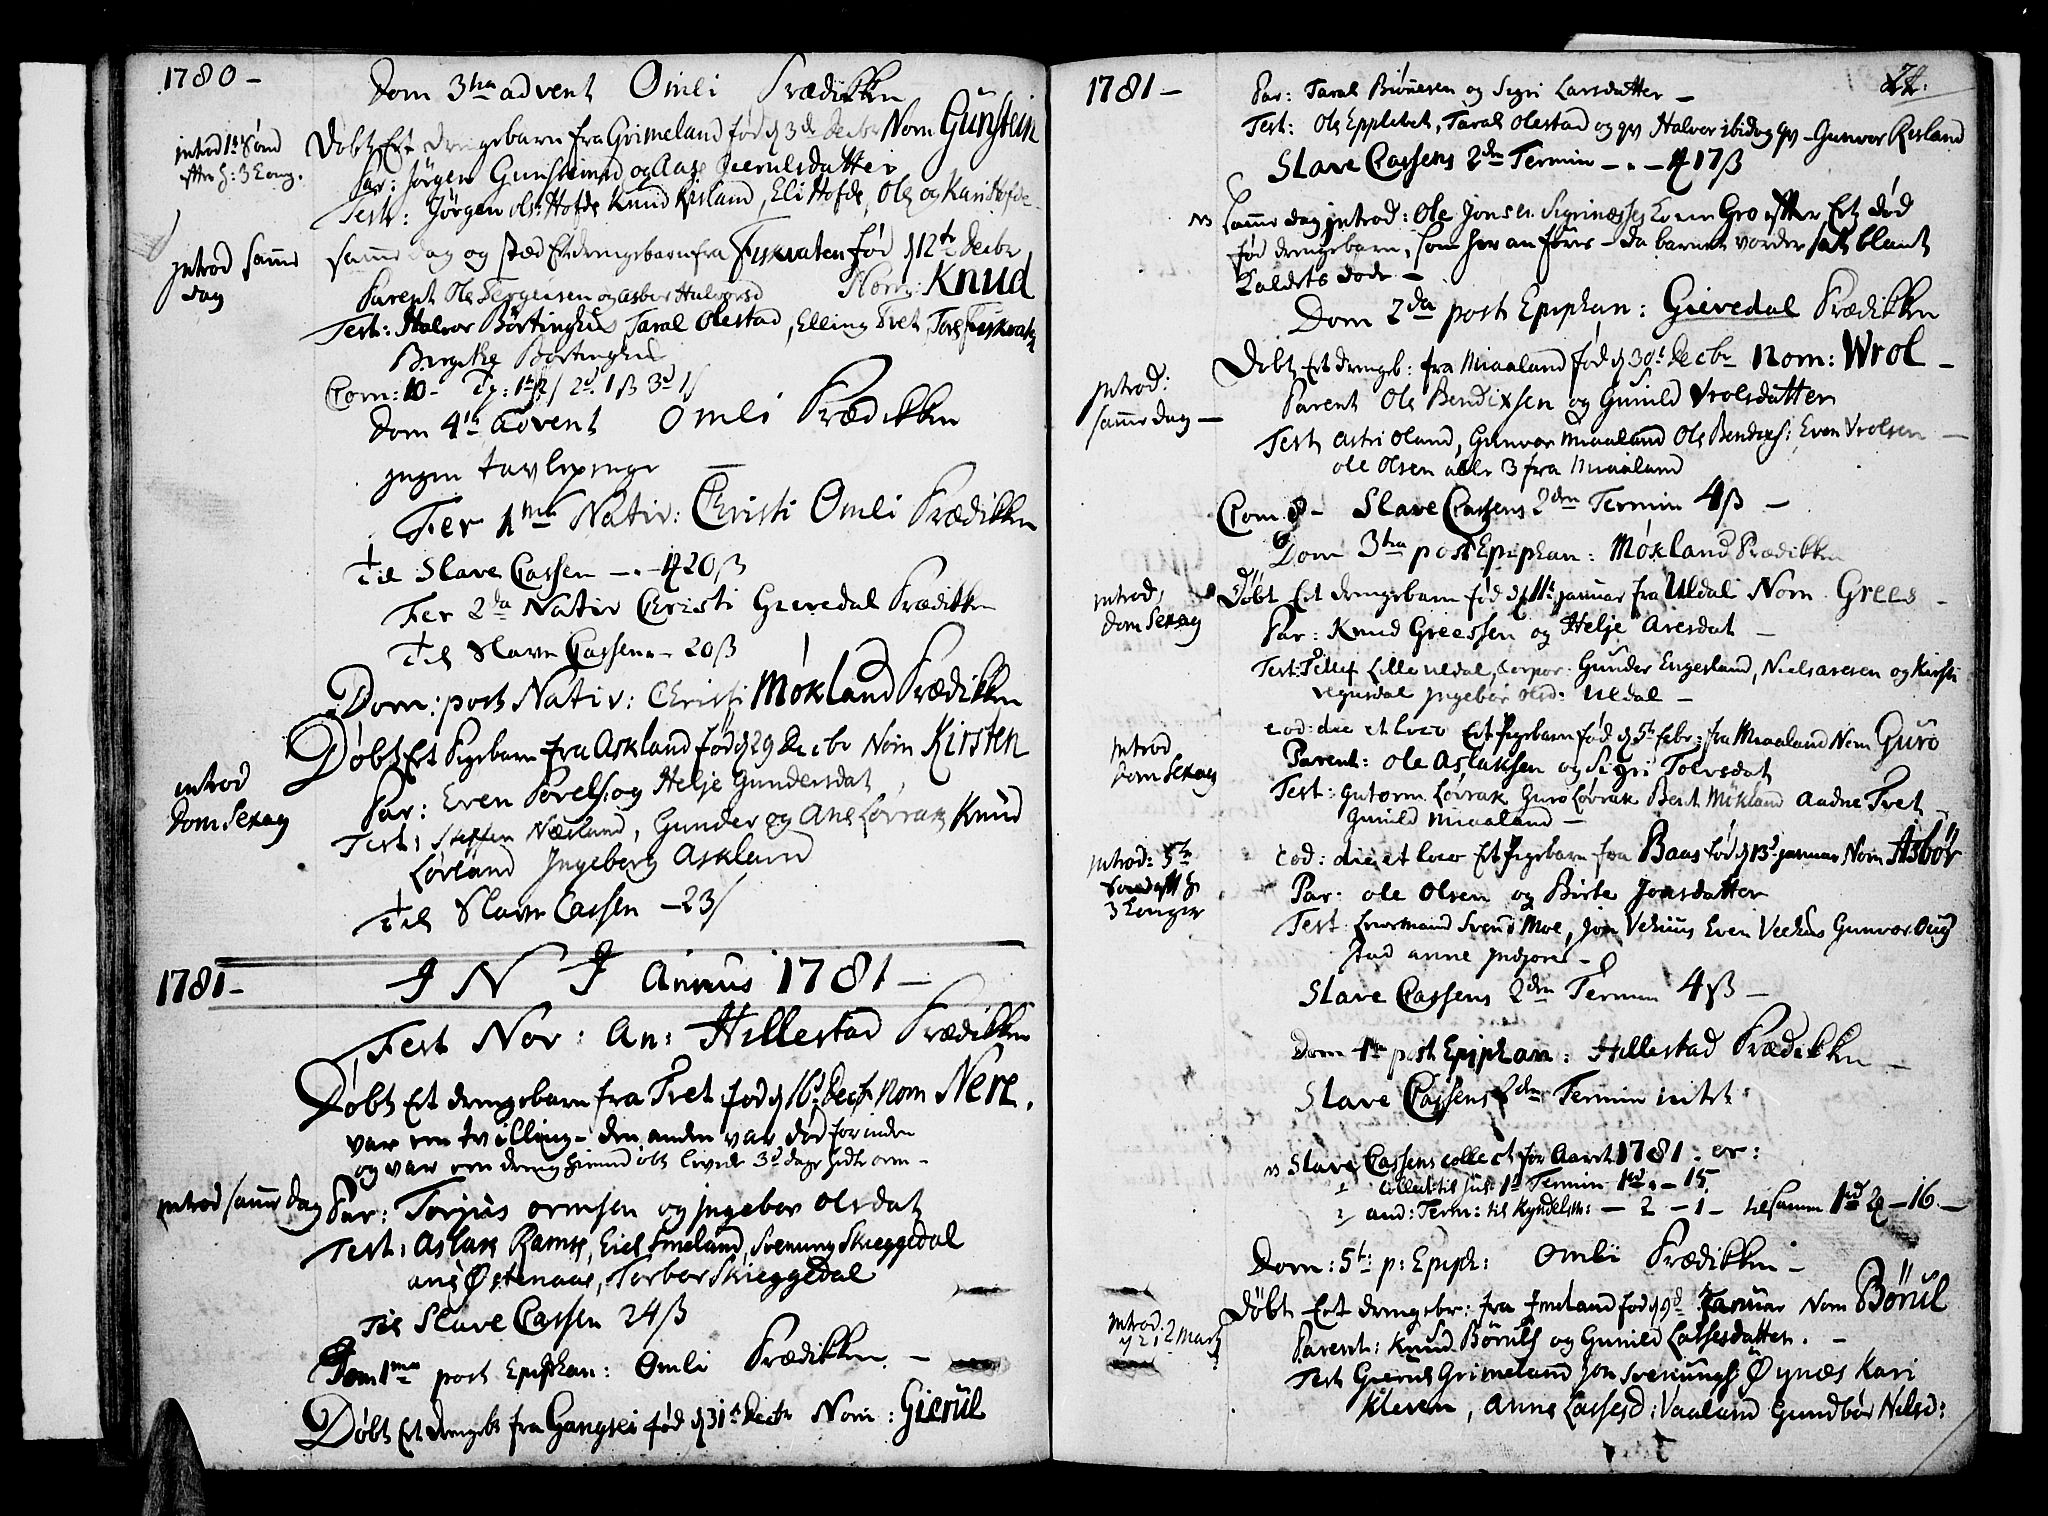 1780 -
Dom 3tia advent Omli Prædikken
introd 1te Sønd
efter h: 3 Kong.
Døbt Et drengebarn fra Grimeland fød d 3de Decbr Nom Gunstein
Par: Jörgen Gunsteinsen og Aase Gierulsdatter
Test: Jörgen ols: Hofde Knud Risland, Eli Hofde, Ole og Kari Hofde
introd samme
dag
samme dag og sted Et drengebarn fra Fiskvaten fød d 12te Decbr
Parent Ole Tergiusen og Asbor Halvorsd Nom: Knud
Test: Halvor Börtinghus Taral Olestad, Elling Tvet, Tore Fiskvaten
Birgithe Börtinghus
Com: 10 -
Dom 4te Advent Omli Prædikken
ingen tavlepenge
Fer 1ma Nativ: Christi Omli Prædikken
Til Slave Cassen - 20 ß
Fer 2da Nativ Christi Gievedal Prædikken
Til Slave Cassen - 20 ß
Dom: post Nativ: Christi Mökland Prædikken
introd
Dom Sexag
Döbt Et Pigebarn fra Askland fød d 29 Decbr Nom Kirsten
Par: Even Povels: og Helje Gundersdat
Test: Steffen Næsland, Gunder og Ane Lövrak Knud
Lörland Ingeborg Askland
Til Slave Cassen - 23 ß
1781 -
I N J Annus 1781 -
Fest Nov: An: Hillestad Prædikken
Döbt Et drengebarn fra Tvet fød d 16d Decbr nom Nere.
var een tvilling - den anden var død forinden
og var een dreng levede 3d dage
introd samme dag
Par: Torjus ormsen og Ingebor olsdat
Test: Aslak Ramse, Eiel Smeland, Svenung Skieggedal
ane Østenaas, Torbor Skieggedal
Til Slave Cassen 24 ß
Dom 1ma post Epiphan: Omli Prædikken -
Döbt Et drengeb fra Gangsei fød d 31te Decbr Nom: Gierul
1781 -
24.
Par: Taral Biönesen og Sigri Larsdatter -
Test: Ole Epplebet, Taral Olestad og qv Halvor ibid og qv - Gunvor Risland
Slave Cassens 2den Termin - 17 ß
NB samme dag introd: Ole Jonsen Sigrinæsses Kone Gro efter Et död
fød drengebarn, som her anføres - da barnet vorder sat blant
Kaldets døde -
Dom 2da post Epiphan: Gievedal Prædikken
introd:
samme dag -
Döbt Et drengb: fra Miaaland fød d 30te Decbr Nom: Wrol -
Parent Ole Bendixsen og Gunild Vrolsdatter
Test Astri Oland, Gunvor Miaaland Ole Bendixs: Even Vrolsen
ole Olsen alle 3 fra Miaaland
Com 8 - Slave Cassens 2den Termin 4 ß -
Dom 3tia post Epiphan: Mökland Prædikken
introd,
Dom Sexag
Döbt Et drengebarn fød d 11te januar fra Uldal Nom Grees -
Par: Knud Greessen og Helje Aresdat -
Test: Tellef Lille uldal, Corpor: Gunder Engesland, Niels aresen og Kirsti
Ingebor olsd: Uldal -
introd
Dom Sexag
eod: die et loco Et Pigebarn fød d 5te febr: fra Miaaland Nom Guro
Parent: Ole Aslaksen og Sigri Tolvsdat
Test: Gutorm Lövrak Guro Lövrak Berit Mökland Aadne Tvet
Gunild Miaaland -
introd: 5te
Sønd efter h
3 konger
eod: die et loco Et Pigebarn fra Baas fød d 13d januar Nom Asbör
Par: ole Olsen og Birte Jonsdatter
Test: Svend Moe, Jon Vehuus Even Veehus Gunvor Oug
stad anne
Slave Cassens 2den Termin 4 ß -
Dom 4te post Epiphan: Hillestad Prædikken -
Slave Cassens 2den Termin intet:
NB Slave Cassens collect for Aaret 1781: er:
collect til Jul: 1te Termin 1rd - 15
and: Term: til Kyndelsm: - 2 - 1 - tilsamm 1rd 2 - 16. -
Dom: 5te p: Epiph: Omli Prædikken -
introd:
d 21 2 Marts
Döbt Et drengebr: fra Imeland fød d 9d Januar Nom Börül
Parent: Knud Börüls og Gunild Lassesdatter. -
Test Gierul Grimeland Jon Svenungs Øynæs Kari
Kleven, Anne Lassesd: Vaaland Gundbör Nilsd: